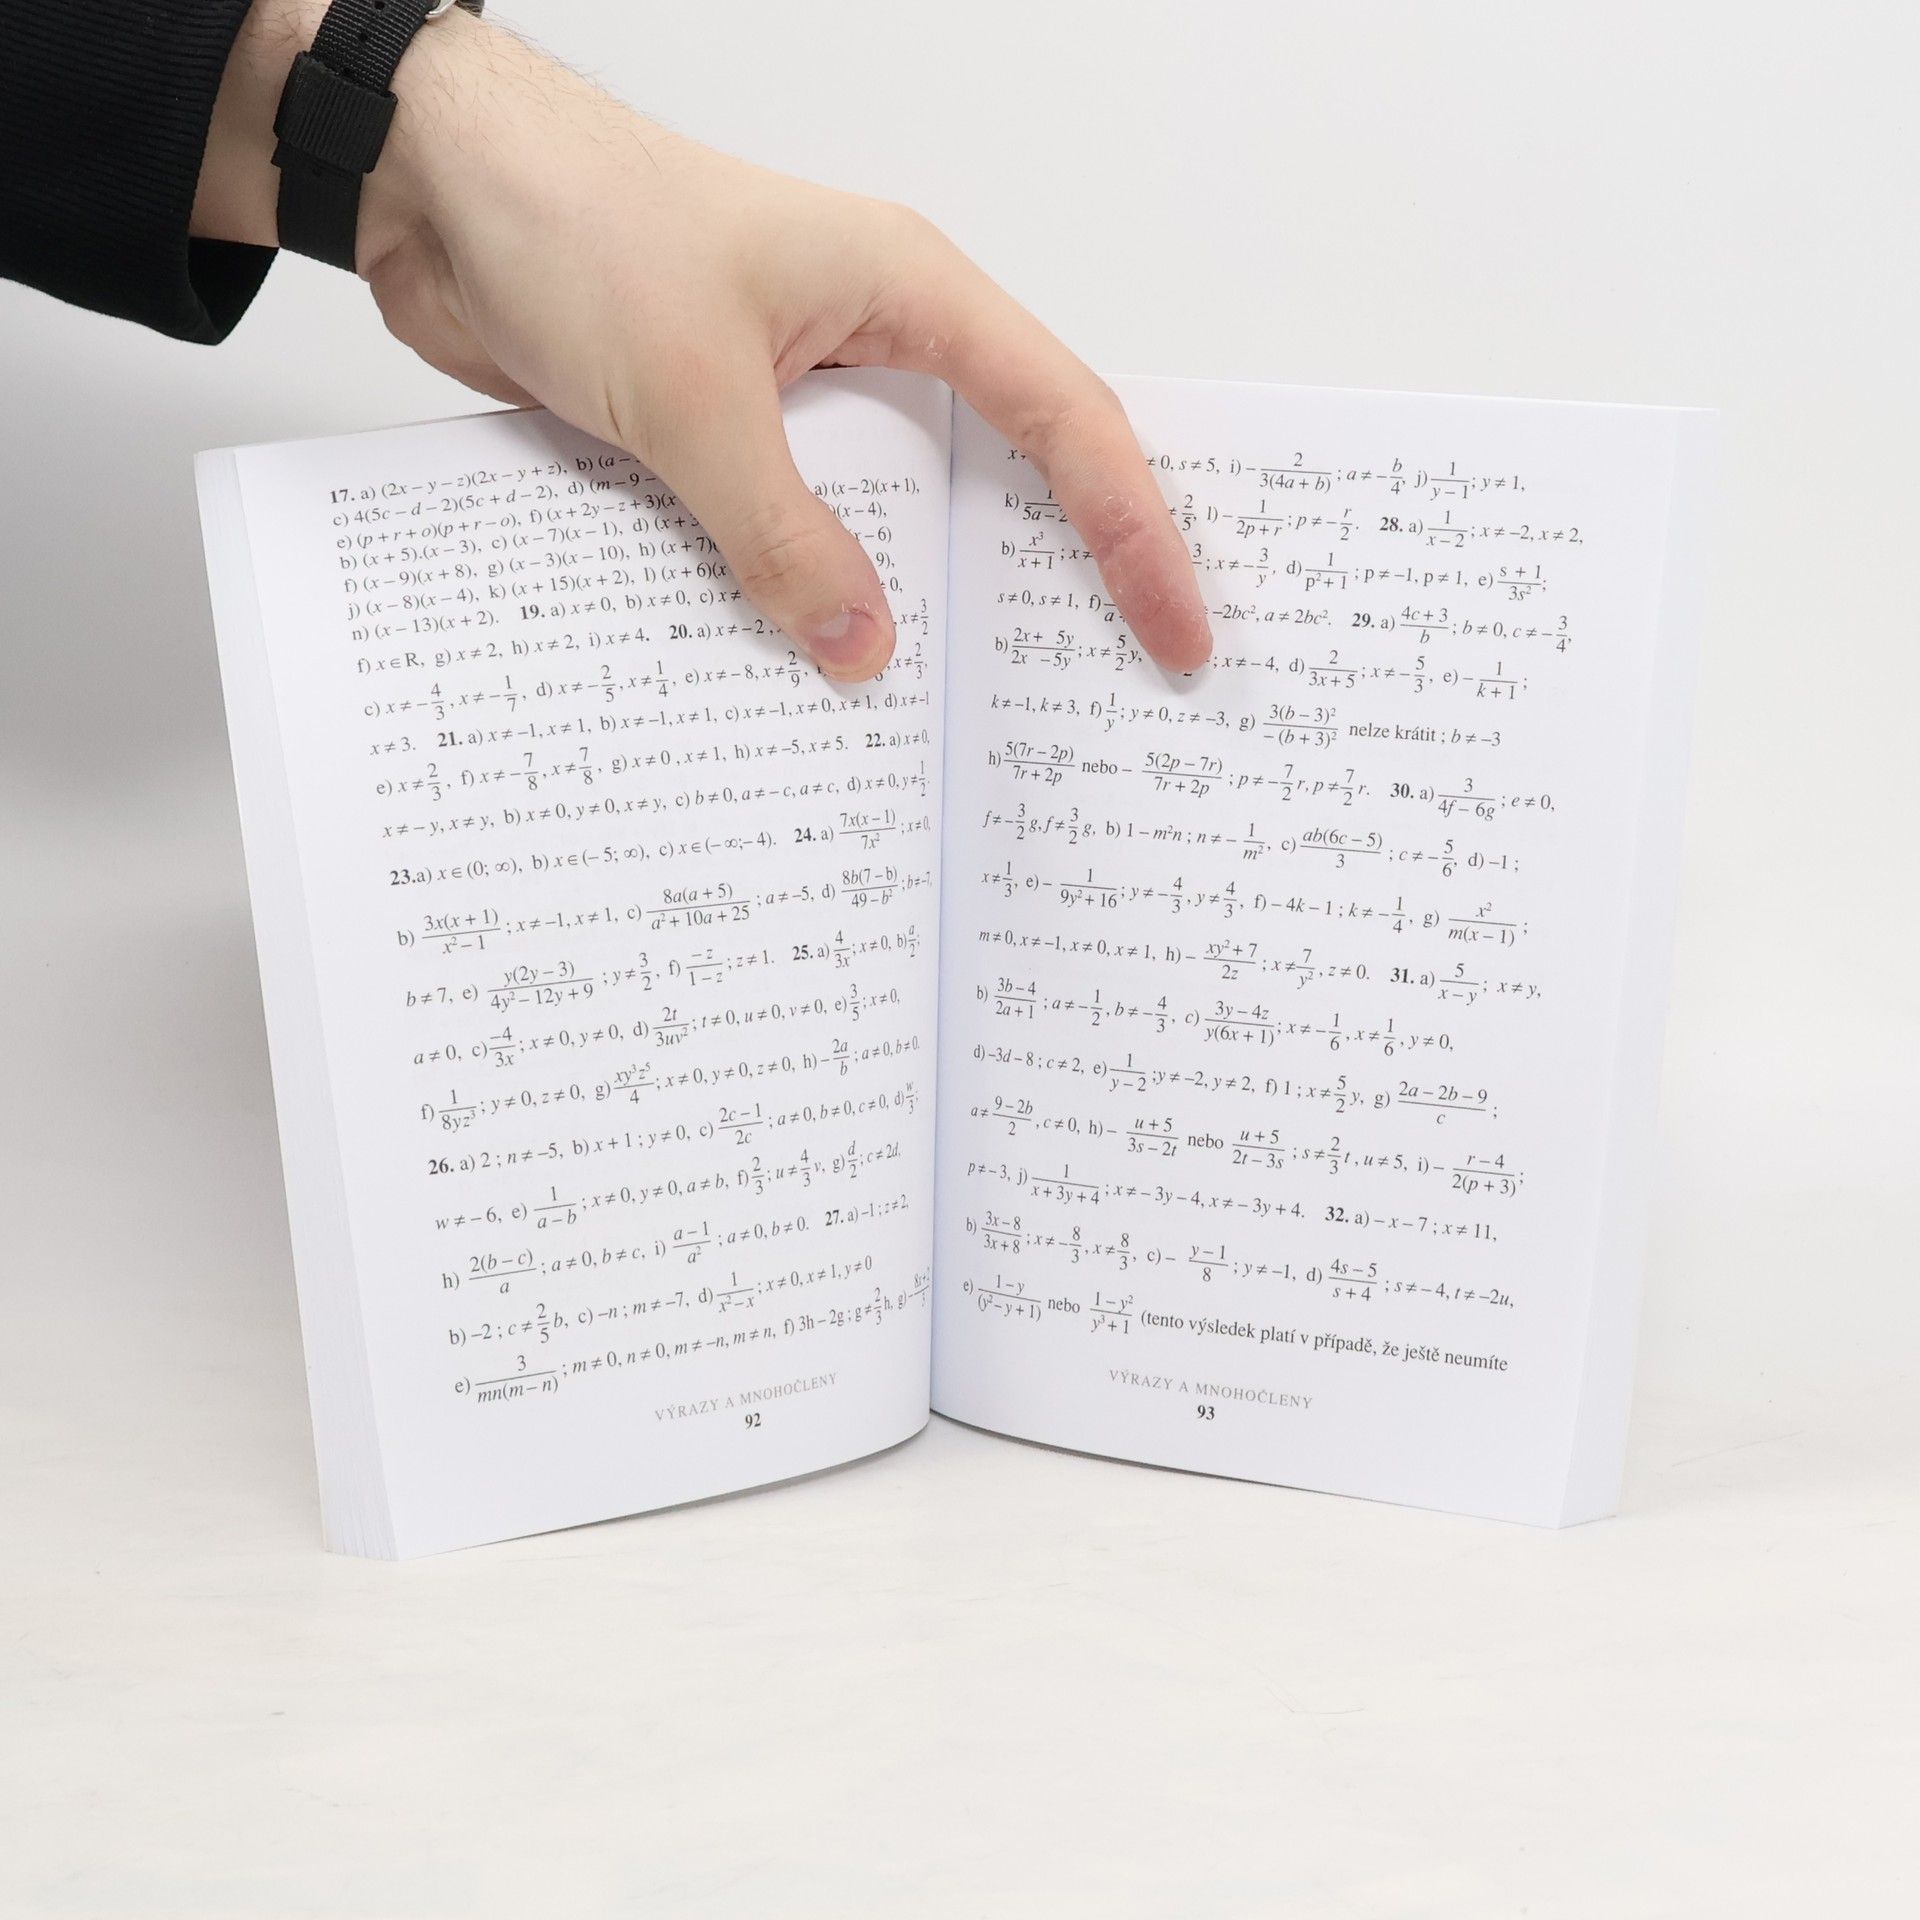 17. a) (2x – y – z)(2x – y + z), b) (a –
c) 4(5c – d – 2)(5c + d – 2), d) (m – 9 – a) (x – 2)(x + 1),
e) (p + r + o)(p + r – o), f) (x + 2y – z + 3)(x )(x – 4),
b) (x + 5).(x – 3), c) (x – 7)(x – 1), d) (x + 3 – 6)
f) (x – 9)(x + 8), g) (x – 3)(x – 10), h) (x + 7)( 9),
j) (x – 8)(x – 4), k) (x + 15)(x + 2), l) (x + 6)(x ≠ 0,
n) (x – 13)(x + 2). 19. a) x ≠ 0, b) x ≠ 0, c) x ≠ , x ≠ 3/2
f) x ∈ R, g) x ≠ 2, h) x ≠ 2, i) x ≠ 4. 20. a) x ≠ – 2 , x ≠ 2/3,
c) x ≠ – 4/3 , x ≠ – 1/7 , d) x ≠ – 2/5 , x ≠ 1/4 , e) x ≠ – 8, x ≠ 2/9 ,
x ≠ 3. 21. a) x ≠ –1, x ≠ 1, b) x ≠ –1, x ≠ 1, c) x ≠ –1, x ≠ 0, x ≠ 1, d) x ≠ –1
e) x ≠ 2/3 , f) x ≠ – 7/8 , x ≠ 7/8 , g) x ≠ 0 , x ≠ 1, h) x ≠ –5, x ≠ 5. 22. a) x ≠ 0,
x ≠ – y, x ≠ y, b) x ≠ 0, y ≠ 0, x ≠ y, c) b ≠ 0, a ≠ – c, a ≠ c, d) x ≠ 0, y ≠ 1/2.
23.a) x ∈ (0; ∞), b) x ∈ (– 5; ∞), c) x ∈ (– ∞;– 4). 24. a) 7x(x – 1)/7x² ; x ≠ 0,
b) 3x(x + 1)/x² – 1 ; x ≠ –1, x ≠ 1, c) 8a(a + 5)/a² + 10a + 25 ; a ≠ –5, d) 8b(7 – b)/49 – b² ; b ≠ –7,
b ≠ 7, e) y(2y – 3)/4y² – 12y + 9 ; y ≠ 3/2 , f) – z/1 – z ; z ≠ 1. 25. a) 4/3x ; x ≠ 0, b) a/2 ;
a ≠ 0, c) –4/3x ; x ≠ 0, y ≠ 0, d) 2t/3uv² ; t ≠ 0, u ≠ 0, v ≠ 0, e) 3/5 ; x ≠ 0,
f) 1/8yz³ ; y ≠ 0, z ≠ 0, g) xy³z⁵/4 ; x ≠ 0, y ≠ 0, z ≠ 0, h) – 2a/b ; a ≠ 0, b ≠ 0.
26. a) 2 ; n ≠ –5, b) x + 1 ; y ≠ 0, c) 2c – 1/2c ; a ≠ 0, b ≠ 0, c ≠ 0, d) w/3 ;
w ≠ – 6, e) 1/a – b ; x ≠ 0, y ≠ 0, a ≠ b, f) 2/3 ; u ≠ 4/3 v, g) d/2 ; c ≠ 2d,
h) 2(b – c)/a ; a ≠ 0, b ≠ c, i) a – 1/a² ; a ≠ 0, b ≠ 0. 27. a) –1 ; z ≠ 2,
b) –2 ; c ≠ 2/5 b, c) –n ; m ≠ –7, d) 1/x² – x ; x ≠ 0, x ≠ 1, y ≠ 0
e) 3/mn(m – n) ; m ≠ 0, n ≠ 0, m ≠ –n, m ≠ n, f) 3h – 2g ; g ≠ 2/3 h, g) –
VÝRAZY A MNOHOČLENY
92
≠ 0, s ≠ 5, i) – 2/3(4a + b) ; a ≠ – b/4, j) 1/y – 1 ; y ≠ 1,
k) 2/5, l) – 1/2p + r ; p ≠ – r/2. 28. a) 1/x – 2 ; x ≠ –2, x ≠ 2,
b) x³/x + 1 ; x ≠ ; x ≠ – 3/y, d) 1/p² + 1 ; p ≠ –1, p ≠ 1, e) s + 1/3s² ;
s ≠ 0, s ≠ 1, f) –2bc², a ≠ 2bc². 29. a) 4c + 3/b ; b ≠ 0, c ≠ – 3/4,
b) 2x + 5y/2x – 5y ; x ≠ 5/2 y, ; x ≠ – 4, d) 2/3x + 5 ; x ≠ – 5/3, e) – 1/k + 1 ;
k ≠ –1, k ≠ 3, f) 1/y ; y ≠ 0, z ≠ –3, g) 3(b – 3)²/– (b + 3)² nelze krátit ; b ≠ –3
h) 5(7r – 2p)/7r + 2p nebo – 5(2p – 7r)/7r + 2p ; p ≠ – 7/2 r, p ≠ 7/2 r. 30. a) 3/4f – 6g ; e ≠ 0,
f ≠ – 3/2 g, f ≠ 3/2 g, b) 1 – m²n ; n ≠ – 1/m², c) ab(6c – 5)/3 ; c ≠ – 5/6, d) –1 ;
x ≠ 1/3, e) – 1/9y² + 16 ; y ≠ – 4/3, y ≠ 4/3, f) – 4k – 1 ; k ≠ – 1/4, g) x²/m(x – 1) ;
m ≠ 0, x ≠ –1, x ≠ 0, x ≠ 1, h) – xy² + 7/2z ; x ≠ 7/y², z ≠ 0. 31. a) 5/x – y ; x ≠ y,
b) 3b – 4/2a + 1 ; a ≠ – 1/2, b ≠ – 4/3, c) 3y – 4z/y(6x + 1) ; x ≠ – 1/6, x ≠ 1/6, y ≠ 0,
d) –3d – 8 ; c ≠ 2, e) 1/y – 2 ; y ≠ –2, y ≠ 2, f) 1 ; x ≠ 5/2 y, g) 2a – 2b – 9/c ;
a ≠ 9 – 2b/2, c ≠ 0, h) – u + 5/3s – 2t nebo u + 5/2t – 3s ; s ≠ 2/3 t , u ≠ 5, i) – r – 4/2(p + 3) ;
p ≠ –3, j) 1/x + 3y + 4 ; x ≠ – 3y – 4, x ≠ – 3y + 4. 32. a) – x – 7 ; x ≠ 11,
b) 3x – 8/3x + 8 ; x ≠ – 8/3, x ≠ 8/3, c) – y – 1/8 ; y ≠ –1, d) 4s – 5/s + 4 ; s ≠ – 4, t ≠ –2u,
e) 1 – y/(y² – y + 1) nebo 1 – y²/y³ + 1 (tento výsledek platí v případě, že ještě neumíte
VÝRAZY A MNOHOČLENY
93